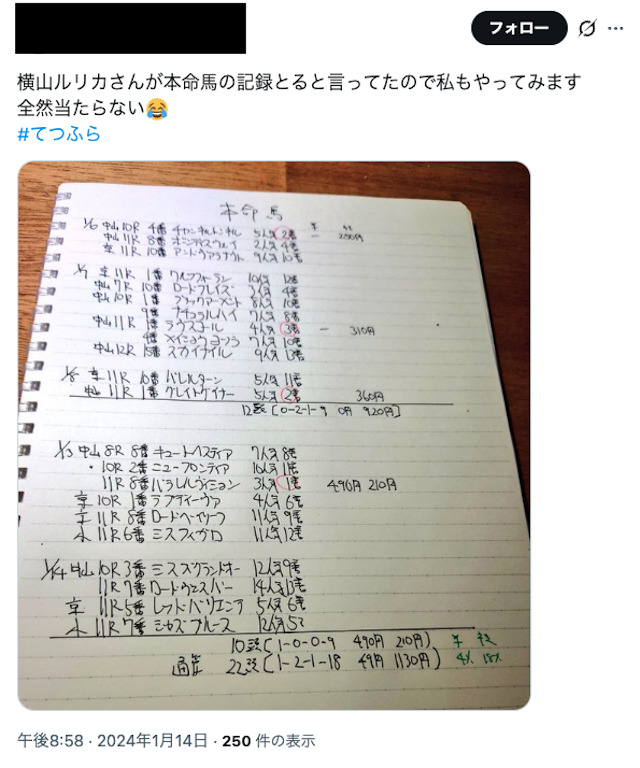 フォロー
横山ルリカさんが本命馬の記録とると言ってたので私もやってみます
全然当たらない😂
#てつふら
本命馬
1/6 中山10R 4番 5人気 2着 — 250円
中山11R 8番 2人気 4着
京11R 10番 9人気 10着
1/7 京11R 1番 10人気 12着
中山7R 10番 ロードプレイズ 3人気 4着
中山10R 1番 8人気
9番 ナチュラルハイ 7人気 8着
中山11R 1番 ラウスコール 4人気 3着 — 310円
4番 7人気 10着
中山12R 15番 スカイナイル 9人気 13着
1/8 京11R 10番 バレルターン 5人気 11着
中山11R 1番 グレイトゲイナー 5人気 2着 360円
12頭 [0-2-1-9 0円 920円]
1/13 中山8R 8番 キュートヘスティア 7人気 8着
10R 2番 ニューフロンティア 10人気
11R 8番 パラレルヴィジョン 3人気 1着 490円 210円
京10R 1番 ラプティーヴァ 4人気 6着
京11R 8番 ロードベイリーフ 11人気 9着
小11R 6番 ミスフィガロ 11人気 12着
1/14 中山10R 3番 ミスズグランドオー 12人気 9着
11R 7番 ロードウェスパー 14人気 13着
京11R 5番 レッドバリエンテ 5人気 6着
小11R 7番 シャズブルース 12人気
10頭 [1-0-0-9 490円 210円) 単 複
通算 22頭 [1-2-1-18 49円 1130円) 4%
午後8:58 · 2024年1月14日 · 250 件の表示